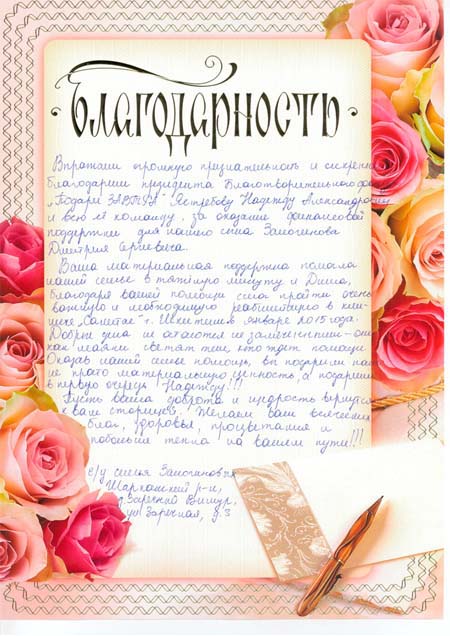 Благодарность
Выражаем огромную признательность и искренне
благодарим президента Благотворительного фонда
"Подари ЗАВТРА" Ястребову Надежду Александровну
и всю её команду, за оказание финансовой
поддержки для нашего сына
Дмитрия Сергеевича.
Ваша материальная поддержка помогла
нашей семье в тяжёлую минуту и Дима,
благодаря вашей помощи смог пройти очень
важную и необходимую реабилитацию в
г. Ижевск в январе 2015 года.
Добрые дела не остаются незамеченными - они
как маяки светят тем, кто ждёт помощи.
Оказав нашей семье помощь, вы подарили нам
не просто материальную ценность, а подарили
в первую очередь Надежду!!!
Пусть ваша доброта и щедрость вернутся
к вам сторицей. Желаем вам всяческих
благ, здоровья, процветания и
побольше тепла на вашем пути!!!
с/у семья
Шарканский р-н,
д. Заречный Вишур,
ул Заречная, д. 3